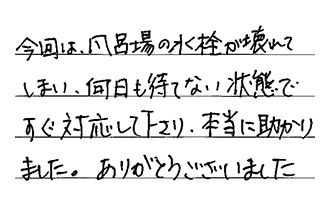 今回は、風呂場の水栓が壊れて
しまい、何日も待てない状態で
すぐ対応して下さり、本当に助かり
ました。ありがとうございました